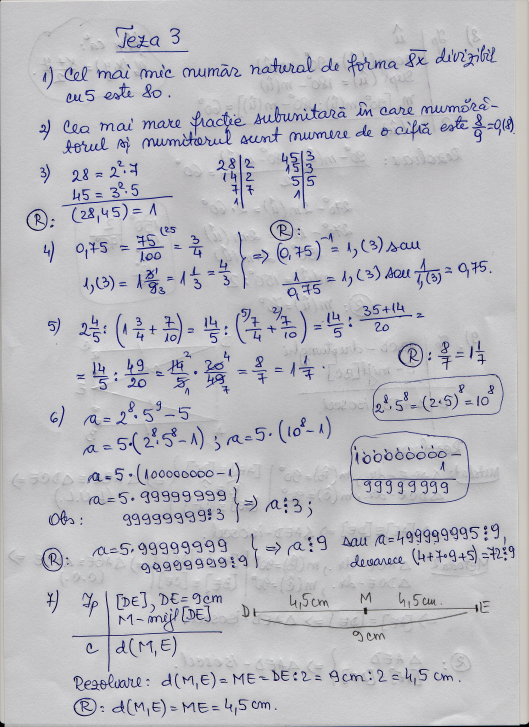 Teza 3
1) Cel mai mic număr natural de forma 8x̄ divizibil
cu 5 este 80.
2) Cea mai mare fracție subunitară în care numără-
torul și numitorul sunt numere de o cifră este 8/9=0,(8)
3) 28 = 2²·7
45 = 3²·5
(R): (28,45) = 1
28 | 2
14 | 2
7 | 7
1
45 | 3
15 | 3
5 | 5
1
4) 0,75 = 75/100 ⁽²⁵ = 3/4
1,(3) = 1 3/9 = 1 1/3 = 4/3
(R):
=> (0,75)⁻¹ = 1,(3) sau
1/0,75 = 1,(3) sau 1/1,(3) = 0,75.
5) 2 4/5 : (1 3/4 + 7/10) = 14/5 : (⁵⁾7/4 + ²⁾7/10) = 14/5 : 35+14/20 =
= 14/5 : 49/20 = 14²/5₁ · 20⁴/49₇ = 8/7 = 1 1/7.
(R): 8/7 = 1 1/7
6) a = 2⁸·5⁹ - 5
2⁸·5⁸ = (2·5)⁸ = 10⁸
a = 5·(2⁸·5⁸-1) ; a = 5·(10⁸-1)
a = 5·(100000000-1)
100000000 -
1
99999999
a = 5·99999999
Obs: 99999999⋮3 } => a⋮3 ;
(R): a = 5·99999999
99999999⋮9 } => a⋮9 sau a = 499999995⋮9,
deoarece (4+7·9+5)=72⋮9
7) Ip [DE], DE = 9cm
M - mijl [DE]
C d(M,E)
4,5cm M 4,5cm.
D E
9cm
Rezolvare: d(M,E) = ME = DE:2 = 9cm:2 = 4,5 cm.
(R): d(M,E) = ME = 4,5cm.